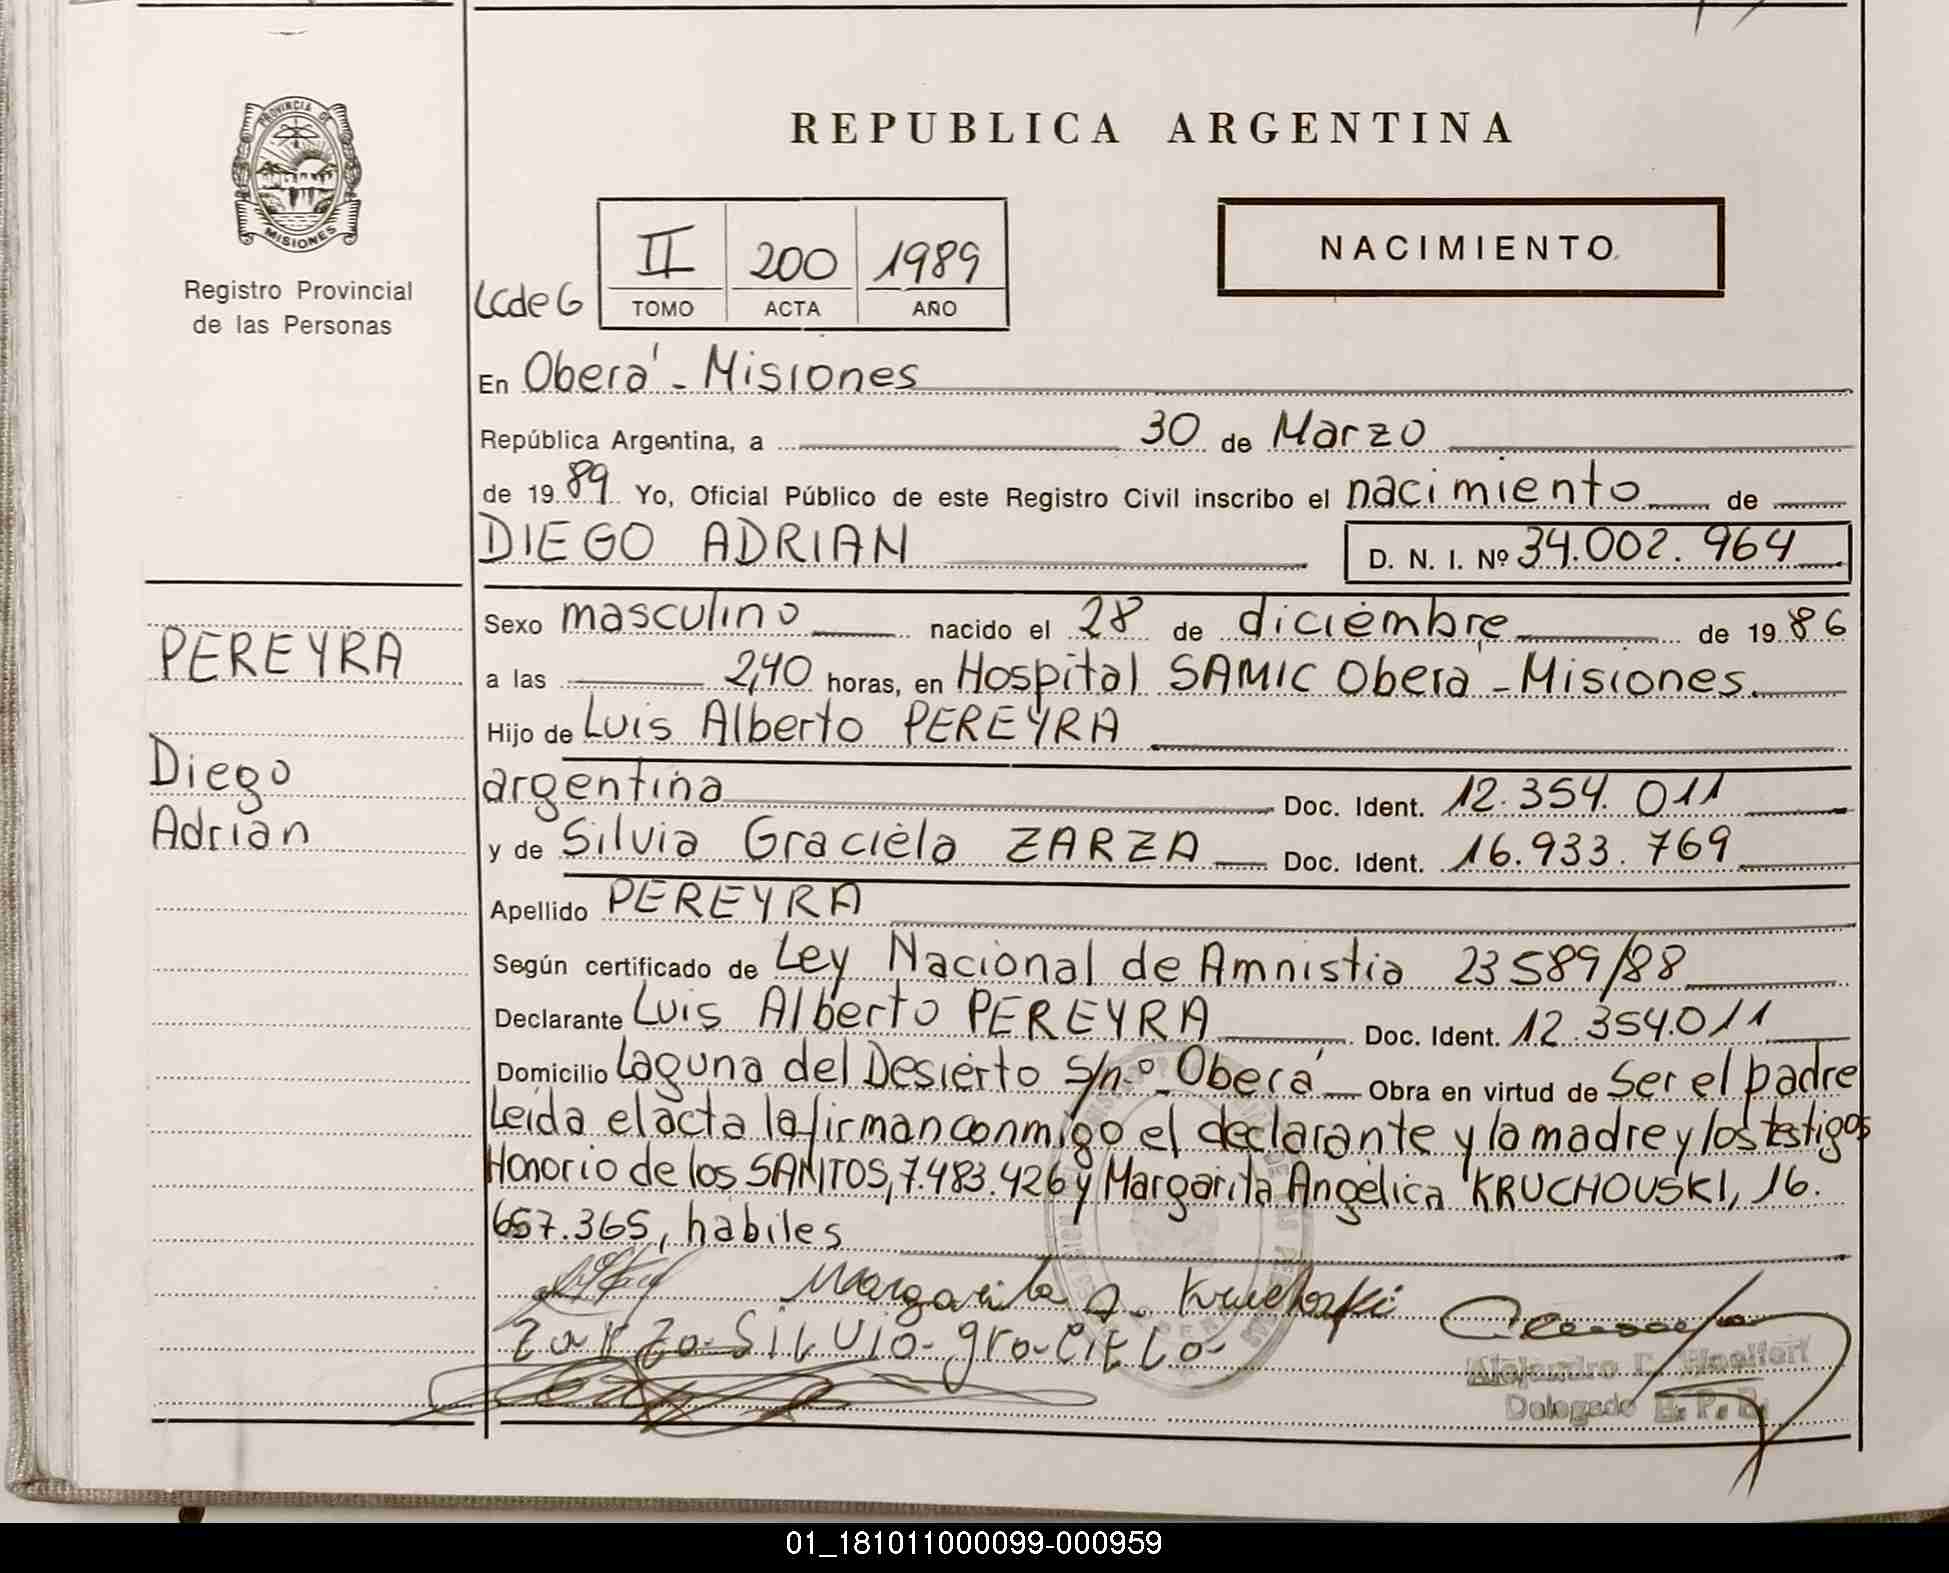 REPUBLICA ARGENTINA
PROVINCIA DE
MISIONES
Registro Provincial
de las Personas
NACIMIENTO
LcdeG
II 200 1989
TOMO ACTA AÑO
En Oberá - Misiones
República Argentina, a 30 de Marzo
de 19 89 Yo, Oficial Público de este Registro Civil inscribo el nacimiento de
DIEGO ADRIAN D. N. I. Nº 34.002.964
PEREYRA
Diego
Adrian
Sexo masculino nacido el 28 de diciembre de 19 86
a las 2,40 horas, en Hospital SAMIC Oberá - Misiones
Hijo de Luis Alberto PEREYRA
argentina Doc. Ident. 12.354.011
y de Silvia Graciela ZARZA Doc. Ident. 16.933.769
Apellido PEREYRA
Según certificado de Ley Nacional de Amnistia 23589/88
Declarante Luis Alberto PEREYRA Doc. Ident. 12.354.011
Domicilio Laguna del Desierto s/nº - Oberá Obra en virtud de Ser el padre
Leída el acta la firman conmigo el declarante y la madre y los testigos
Honorio de los SANTOS, 7.483.426 y Margarita Angélica KRUCHOUSKI, 16.
657.365, habiles
Margarita A.
Zarza Silvia graciela
Delegado
01_181011000099-000959